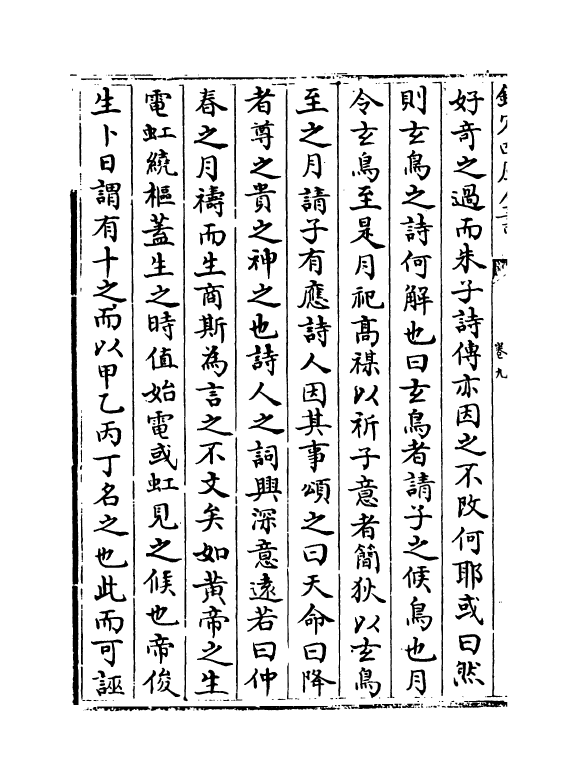 欽定四庫全書
卷九
好奇之過而朱子詩傳亦因之不改何耶或曰然
則玄鳥之詩何解也曰玄鳥者請子之候鳥也月
令玄鳥至是月祀髙禖以祈子意者簡狄以玄鳥
至之月請子有應詩人因其事頌之曰天命曰降
者尊之貴之神之也詩人之詞興深意遠若曰仲
春之月禱而生商斯為言之不文矣如黄帝之生
電虹繞樞蓋生之時值始電或虹見之候也帝俊
生卜日謂有十之而以甲乙丙丁名之也此而可誣